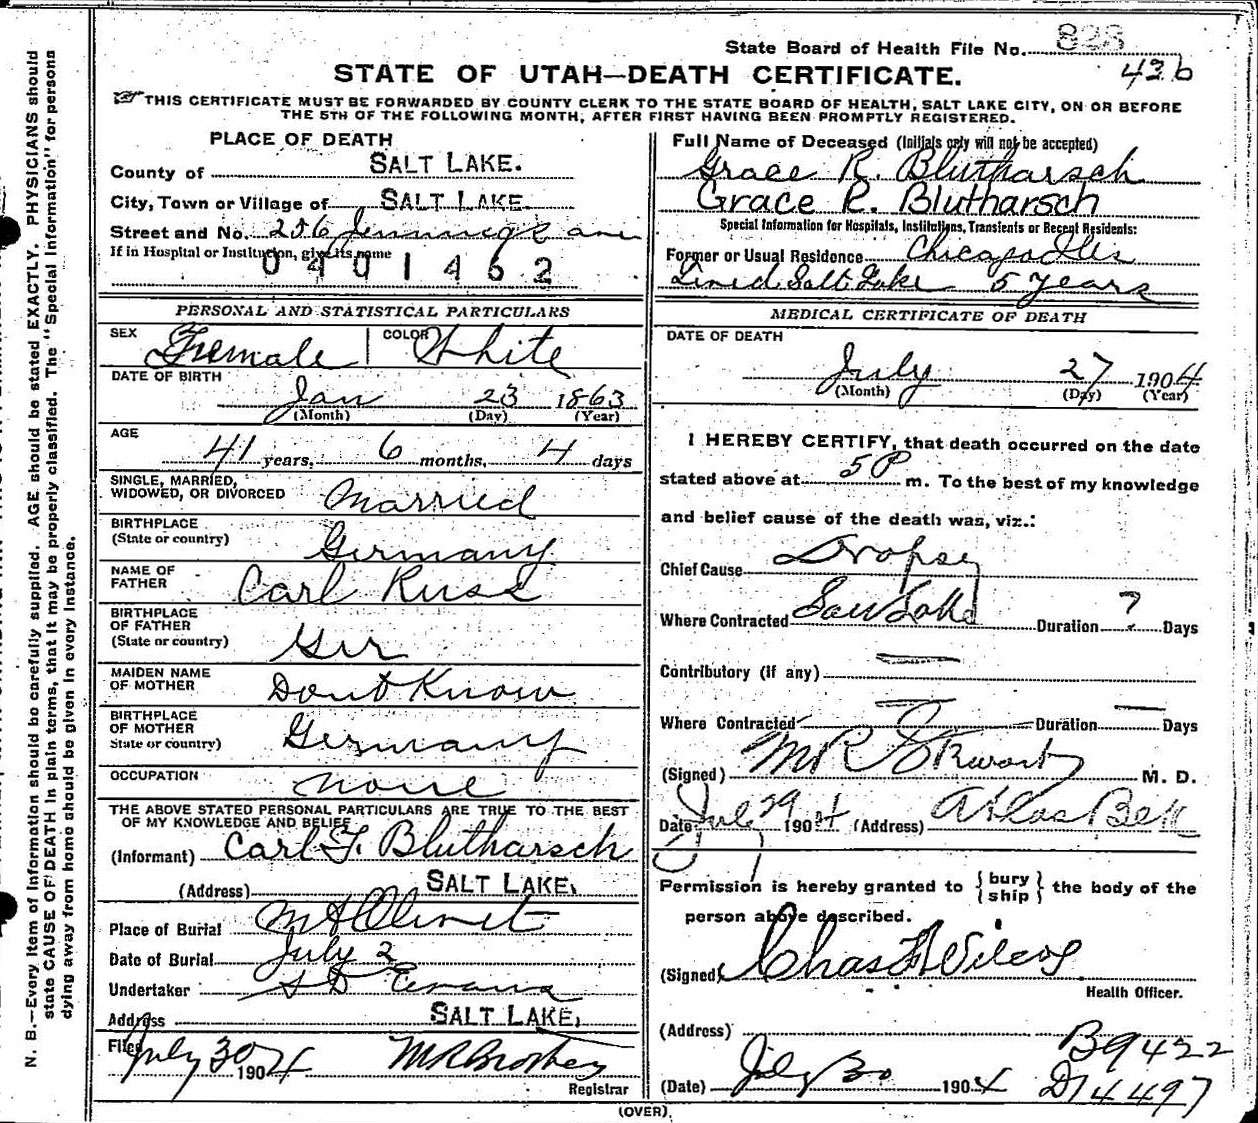 State Board of Health File No. 828
STATE OF UTAH—DEATH CERTIFICATE.
42b
THIS CERTIFICATE MUST BE FORWARDED BY COUNTY CLERK TO THE STATE BOARD OF HEALTH, SALT LAKE CITY, ON OR BEFORE
THE 5TH OF THE FOLLOWING MONTH, AFTER FIRST HAVING BEEN PROMPTLY REGISTERED.
PLACE OF DEATH
County of SALT LAKE.
City, Town or Village of SALT LAKE
Street and No. 256 Jennings ave
If in Hospital or Institution, give its name
0491462
PERSONAL AND STATISTICAL PARTICULARS
SEX Female COLOR White
DATE OF BIRTH
Jan 23 1863
(Month) (Day) (Year)
AGE
41 years, 6 months, 4 days
SINGLE, MARRIED,
WIDOWED, OR DIVORCED Married
BIRTHPLACE
(State or country) Germany
NAME OF
FATHER Carl Russ
BIRTHPLACE
OF FATHER
(State or country) Ger
MAIDEN NAME
OF MOTHER Dont Know
BIRTHPLACE
OF MOTHER
State or country) Germany
OCCUPATION none
THE ABOVE STATED PERSONAL PARTICULARS ARE TRUE TO THE BEST
OF MY KNOWLEDGE AND BELIEF
(Informant) Carl F. Blutharsch
(Address) SALT LAKE,
Place of Burial Mt Olivet
Date of Burial July 2
Undertaker S D Evans
Address SALT LAKE,
Filed July 30 1904
Registrar
Full Name of Deceased (Initials only will not be accepted)
Grace R. Blutharsch
Grace R. Blutharsch
Special Information for Hospitals, Institutions, Transients or Recent Residents:
Former or Usual Residence Chicago Ills
Lived Salt Lake 5 years
MEDICAL CERTIFICATE OF DEATH
DATE OF DEATH
July 27 1904
(Month) (Day) (Year)
I HEREBY CERTIFY, that death occurred on the date
stated above at 5 P m. To the best of my knowledge
and belief cause of the death was, viz.:
Chief Cause Dropsy
Where Contracted Salt Lake Duration ? Days
Contributory (if any) —
Where Contracted — Duration — Days
(Signed) M R Stewart M. D.
Date July 29 1904 (Address) Atlas Bek
Permission is hereby granted to { bury ship } the body of the
person above described.
(Signed) Chas Wilcox
Health Officer.
(Address)
B9422
(Date) July 30 1904 D14497
(OVER)
N. B.—Every item of information should be carefully supplied. AGE should be stated EXACTLY. PHYSICIANS should
state CAUSE OF DEATH in plain terms, that it may be properly classified. The "Special Information" for persons
dying away from home should be given in every instance.